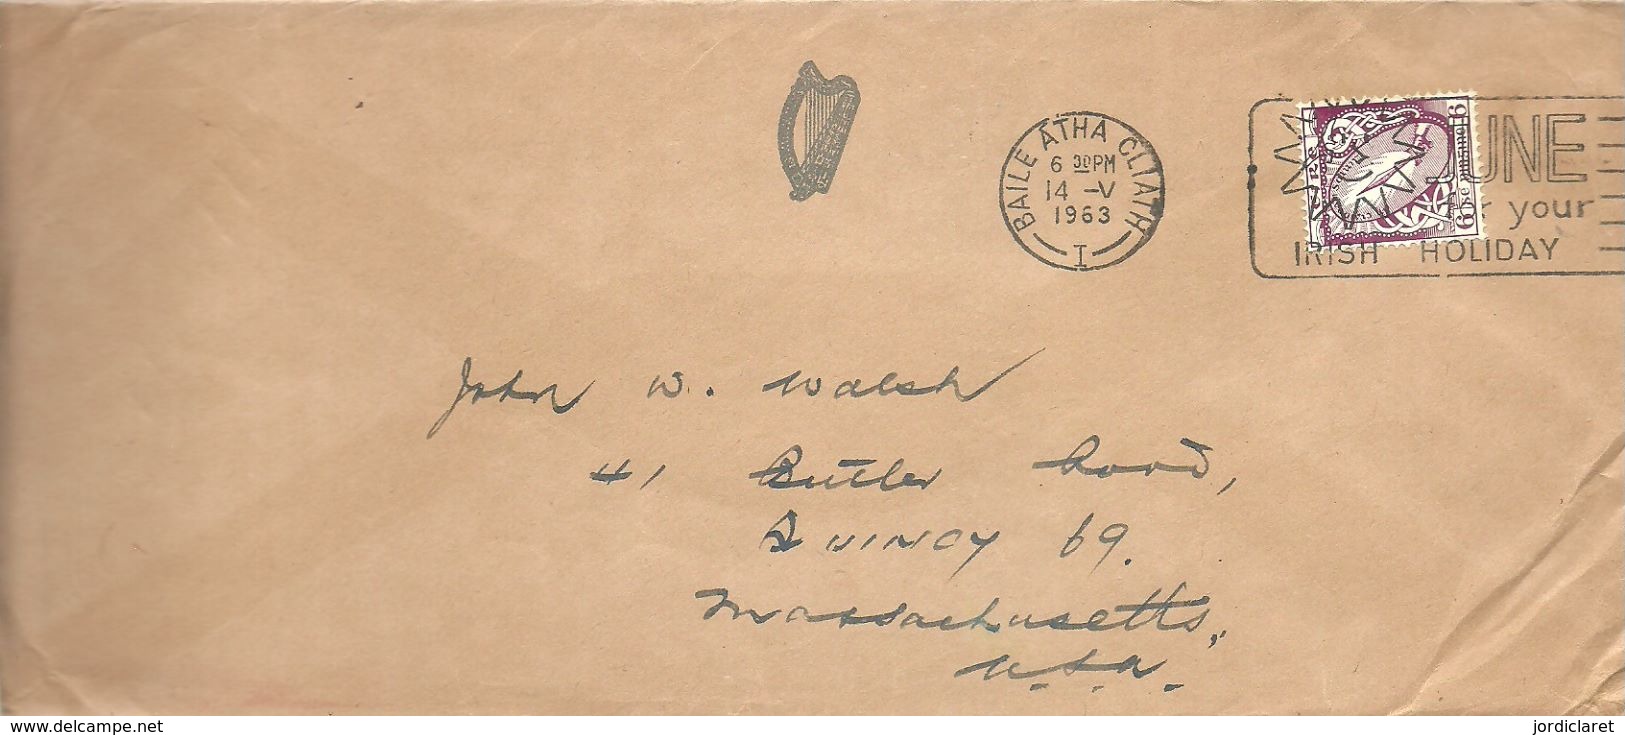 BAILE ÁTHA CLIATH
6 30PM
14 -V
1963
I
JUNE
for your
IRISH HOLIDAY
John W. Walsh
41 Butler Road,
QUINCY 69.
Massachusetts,
U.S.A.
www.delcampe.net
jordiclaret